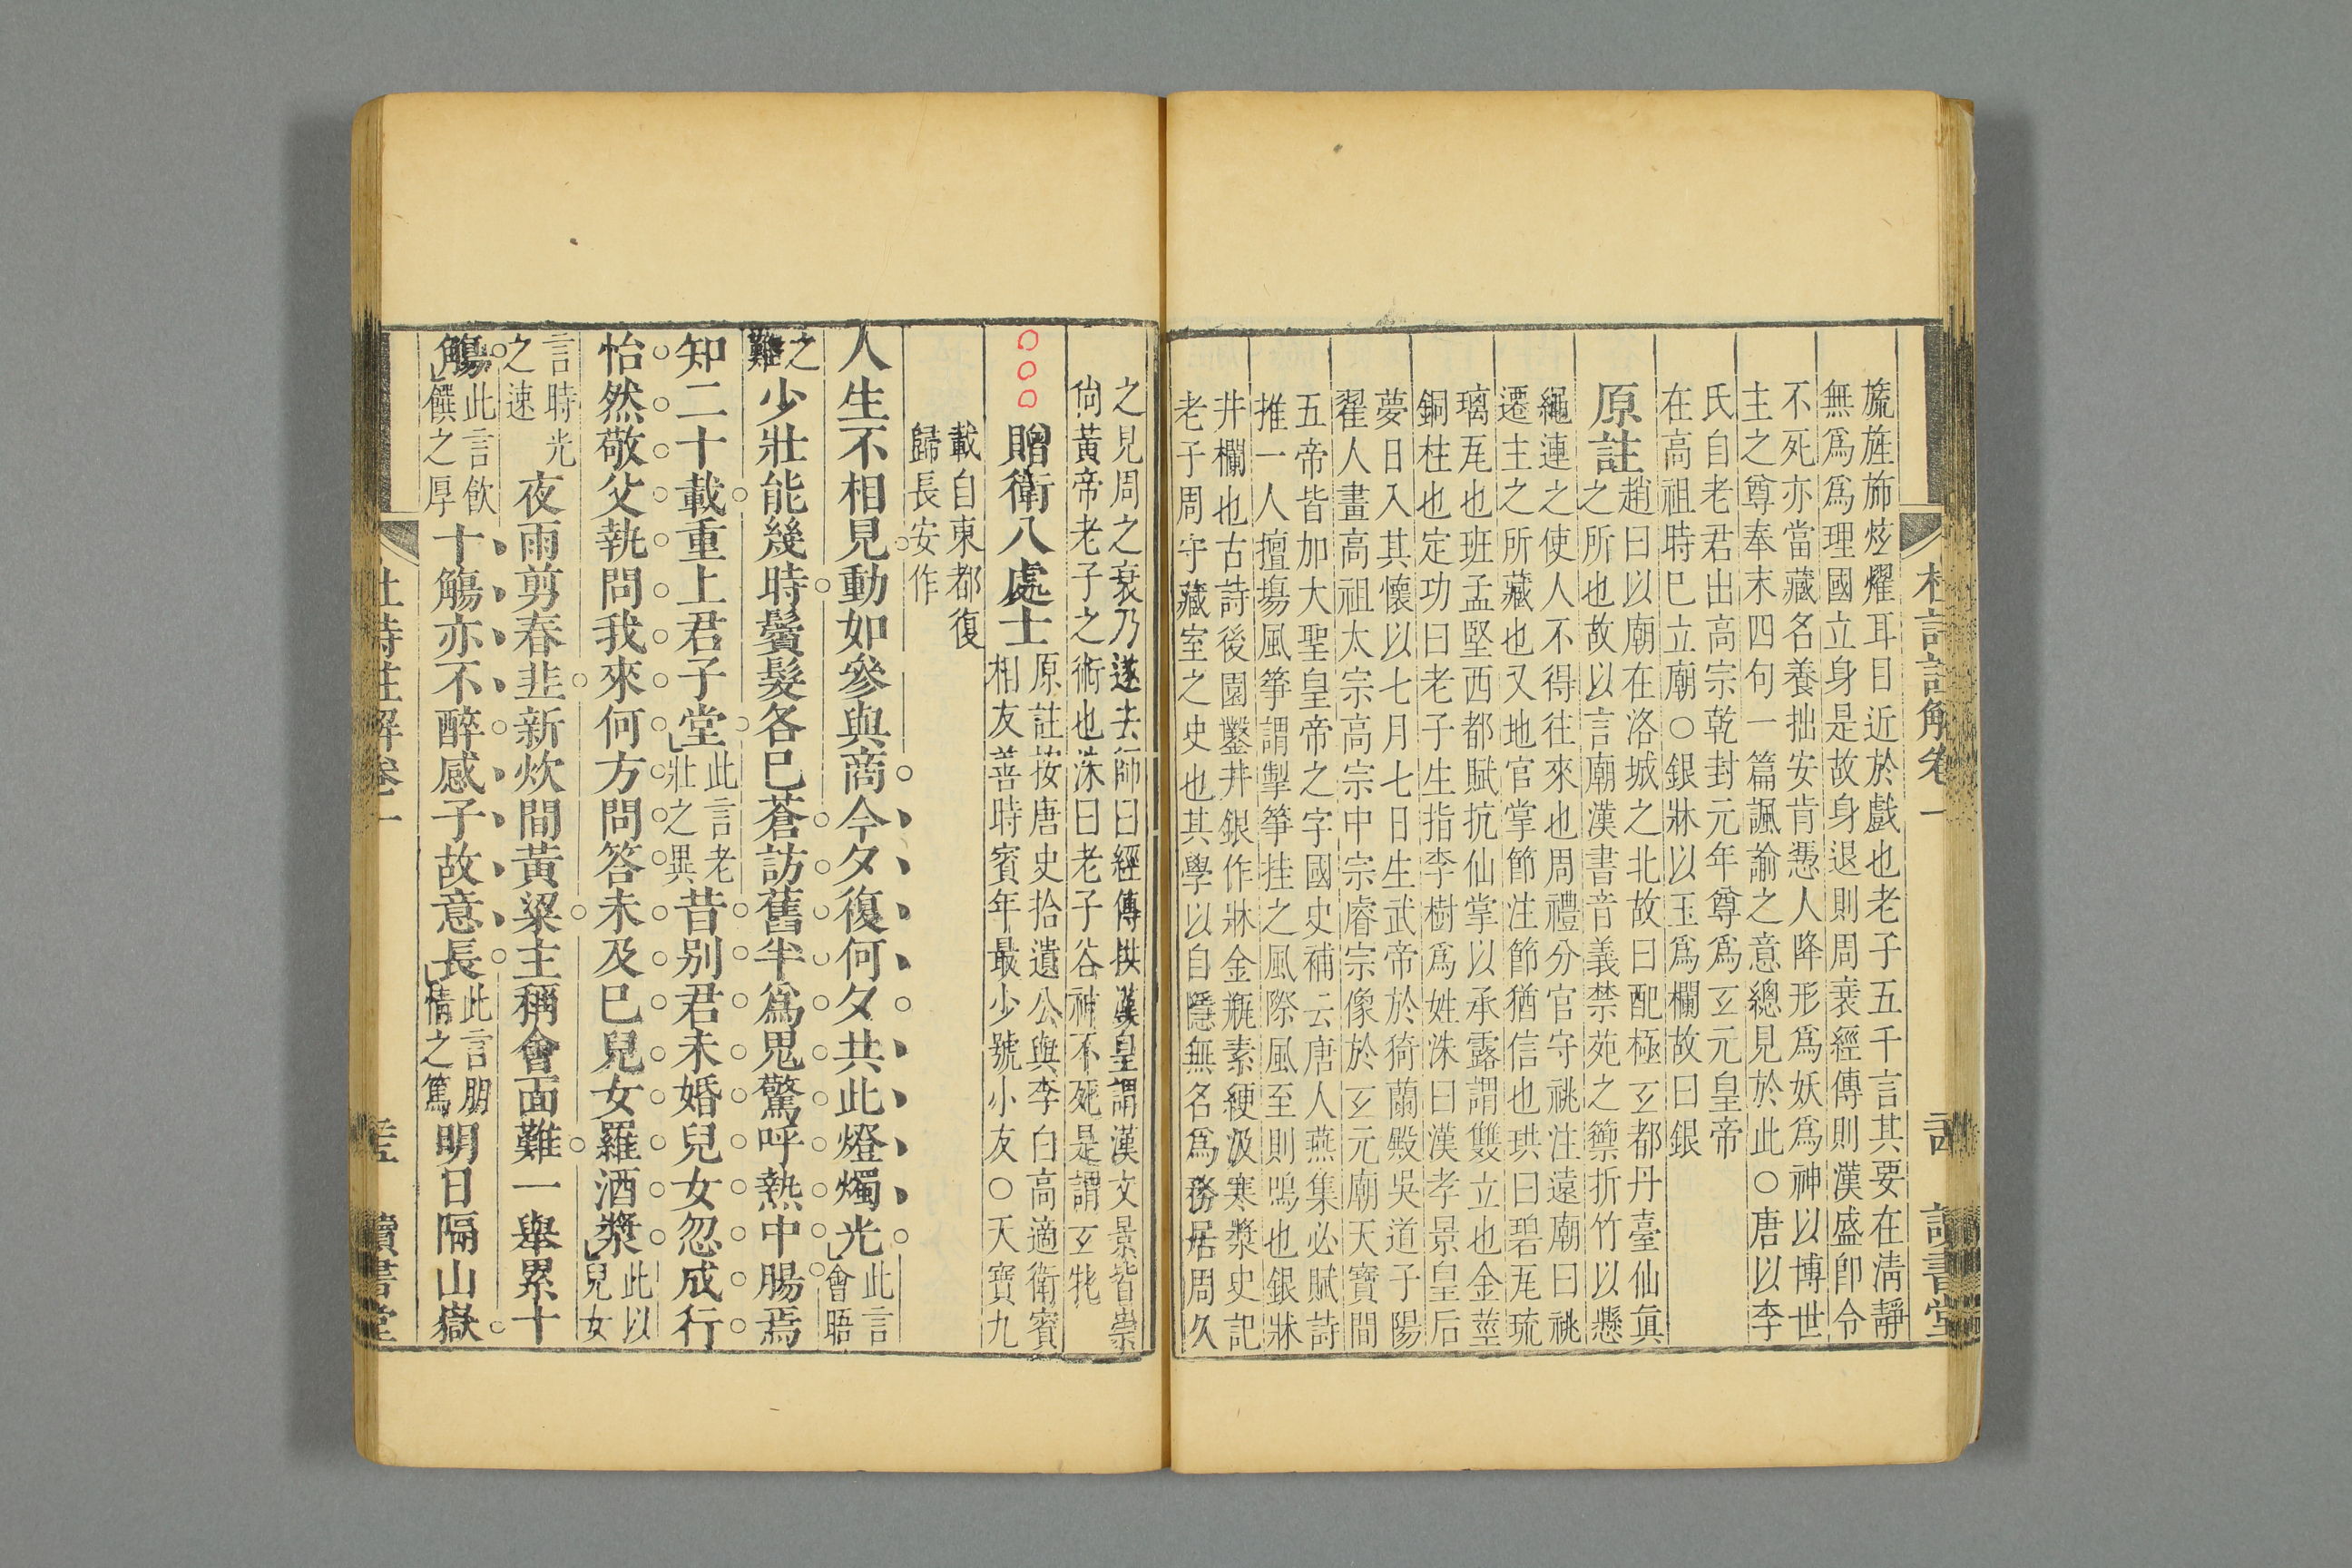 旒旌斾炫燿耳目近於戲也老子五千言其要在淸靜
無爲爲理國立身是故身退則周衰經傳則漢盛卽令
不死亦當藏名養拙安肯慿人降形爲妖爲神以博世
主之尊奉末四句一篇諷諭之意總見於此○唐以李
氏自老君出高宗乾封元年尊爲玄元皇帝
在高祖時巳立廟○銀牀以玉爲欄故曰銀
原註
趙曰以廟在洛城之北故曰配極玄都丹臺仙眞
之所也故以言廟漢書音義禁苑之籞折竹以懸
繩連之使人不得往來也周禮分官守祧注遠廟曰祧
遷主之所藏也又地官掌節注節猶信也珙曰碧瓦琉
璃瓦也班孟堅西都賦抗仙掌以承露謂雙立也金莖
銅柱也定功曰老子生指李樹爲姓洙曰漢孝景皇后
夢日入其懷以七月七日生武帝於猗蘭殿吳道子陽
翟人畫高祖太宗高宗中宗睿宗像於玄元廟天寶間
五帝皆加大聖皇帝之字國史補云唐人燕集必賦詩
推一人擅塲風箏謂掣箏挂之風際風至則鳴也銀牀
井欄也古詩後園鑿井銀作牀金瓶素綆汲寒漿史記
老子周守藏室之史也其學以自隱無名爲務居周久
之見周之衰乃遂去師曰經傳拱漢皇謂漢文景皆崇
尙黃帝老子之術也洙曰老子谷神不死是謂玄牝
贈衛八處士
原註按唐史拾遺公與李白高適衛賓
相友善時賓年最少號小友○天寶九
載自東都復
歸長安作
人生不相見動如參與商今夕復何夕共此燈燭光
此言
會晤
之
難
少壯能幾時鬢髮各已蒼訪舊半爲鬼驚呼熱中腸焉
知二十載重上君子堂
此言老
壯之異
昔别君未婚兒女忽成行
怡然敬父執問我來何方問答未及巳兒女羅酒漿
此以
兒女
言時光
之速
夜雨剪春韭新炊間黃粱主稱會面難一舉累十
觴
此言飮
饌之厚
十觴亦不醉感子故意長
此言朋
情之篤
明日隔山嶽
杜詩註解卷一
讀書堂